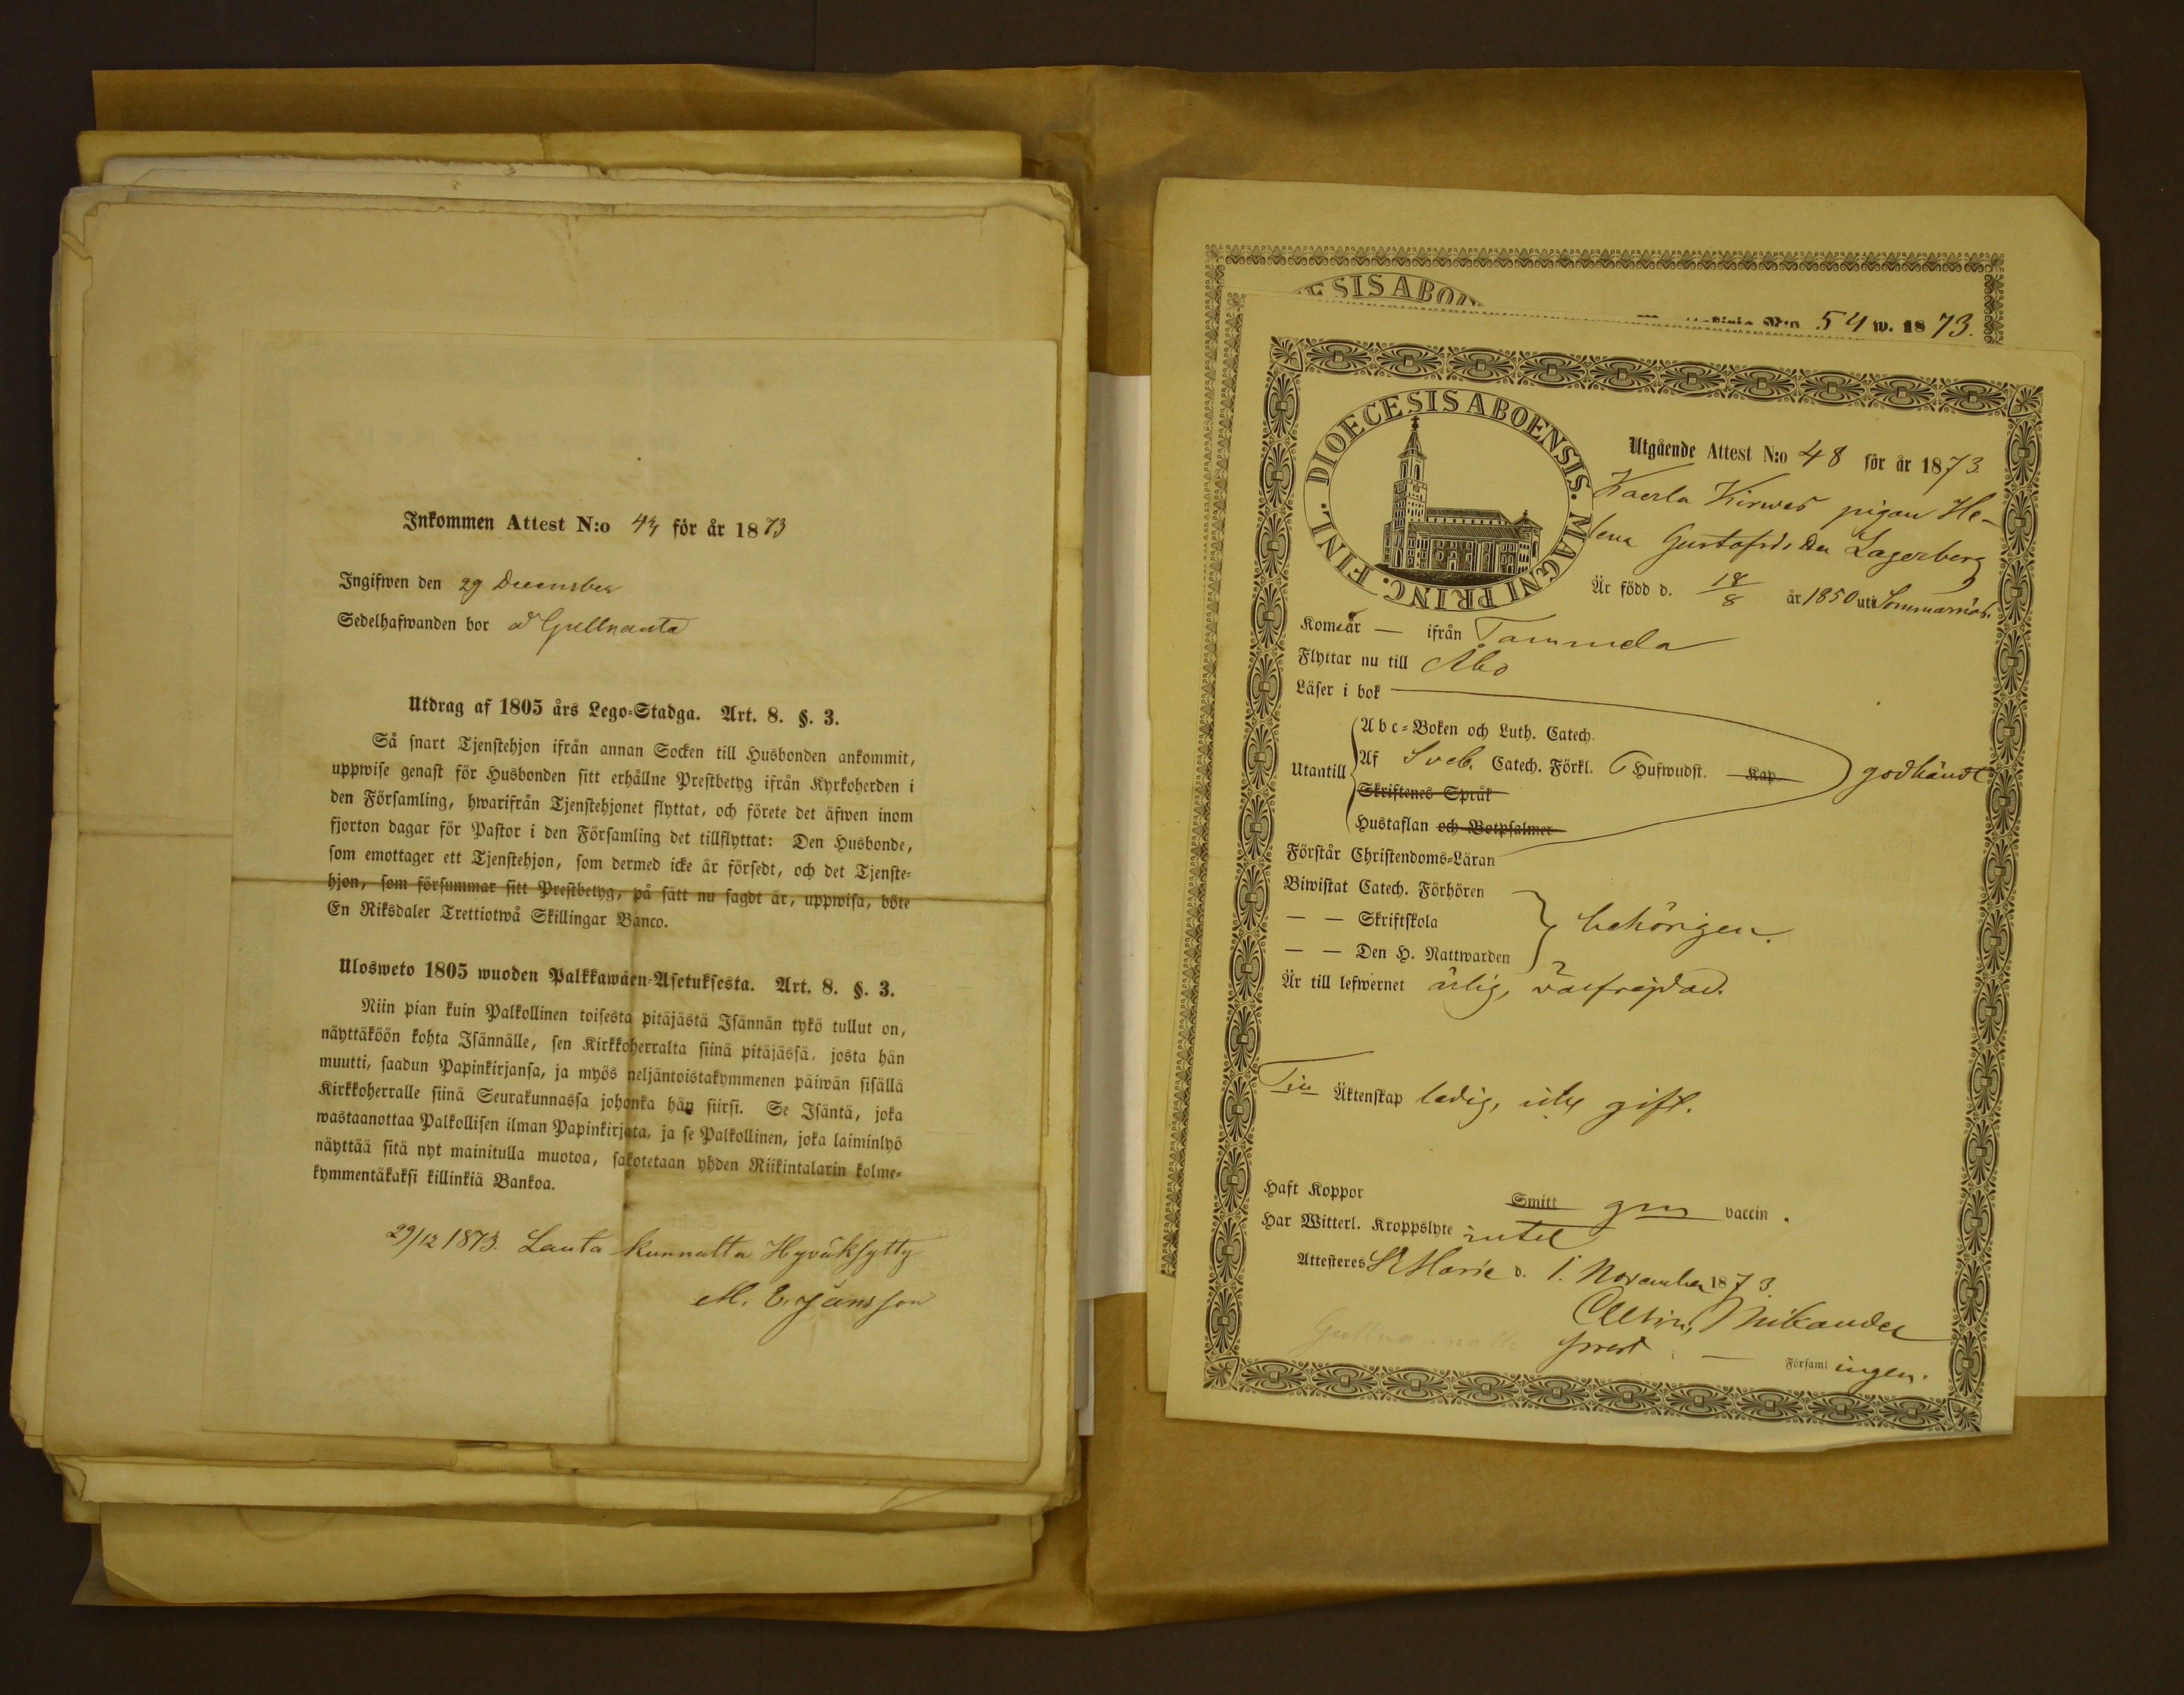 Inkommen Attest N:o 43 för år 1873
Ingifwen den 29 December
Sedelhafwanden bor å Gullnanta
Utdrag af 1805 års Lego-Stadga. Art. 8. §. 3.
Så snart Tjenstehjon ifrån annan Socken till Husbonden ankommit,
uppwise genast för Husbonden sitt erhållne Prestbetyg ifrån Kyrkoherden i
den Församling, hwarifrån Tjenstehjonet flyttat, och förete det äfwen inom
fjorton dagar för Pastor i den Församling det tillflyttat: Den Husbonde,
som emottager ett Tjenstehjon, som dermed icke är försedt, och det Tjenste-
hjon, som försummar sitt Prestbetyg, på sätt nu sagdt är, uppwisa, böte
En Riksdaler Trettiotwå Skillingar Banco.
Ulosweto 1805 wuoden Palkkawäen-Asetuksesta. Art. 8. §. 3.
Niin pian kuin Palkollinen toisesta pitäjästä Isännän tykö tullut on,
näyttäköön kohta Isännälle, sen Kirkkoherralta siinä pitäjässä, josta hän
muutti, saadun Papinkirjansa, ja myös neljäntoistakymmenen päiwän sisällä
Kirkkoherralle siinä Seurakunnassa johonka hän siirsi. Se Isäntä, joka
wastaanottaa Palkollisen ilman Papinkirjata, ja se Palkollinen, joka laiminlyö
näyttää sitä nyt mainitulla muotoa, sakotetaan yhden Riikintalarin kolme-
kymmentäkaksi killinkiä Bankoa.
29/12 1873. Lautakunnalta Hyväksytty
M. E. Jansson
ESIS ABO
N:o 54 w. 1873.
DIOECESIS ABOENSIS. MAGNI PRINC. FINL.
Utgående Attest N:o 48 för år 1873.
Kaerla Kirwes pigan He-
lena Gustafsd:r Lagerberg
Är född d. 18/8 år 1850 uti Sommarnäs.
Kom år — ifrån Tammela
Flyttar nu till Åbo
Läser i bok
Utantill
Abc-Boken och Luth. Catech.
Af Sveb. Catech. Förkl. Hufwudst. Kap. godkändt
Skriftenes Språk
Hustaflan och Botpsalmer
Förstår Christendoms-Läran
Biwistat Catech. Förhören
— — Skriftskola behörigen.
— — Den H. Nattwarden
Är till lefwernet ärlig, välfrejdad.
Till Äktenskap ledig, icke gift.
Haft Koppor Smitt gm vaccin.
Har Witterl. Kroppslyte intet
Attesteres St Marie d. 1. November 1873.
Mikander
Församlingen.